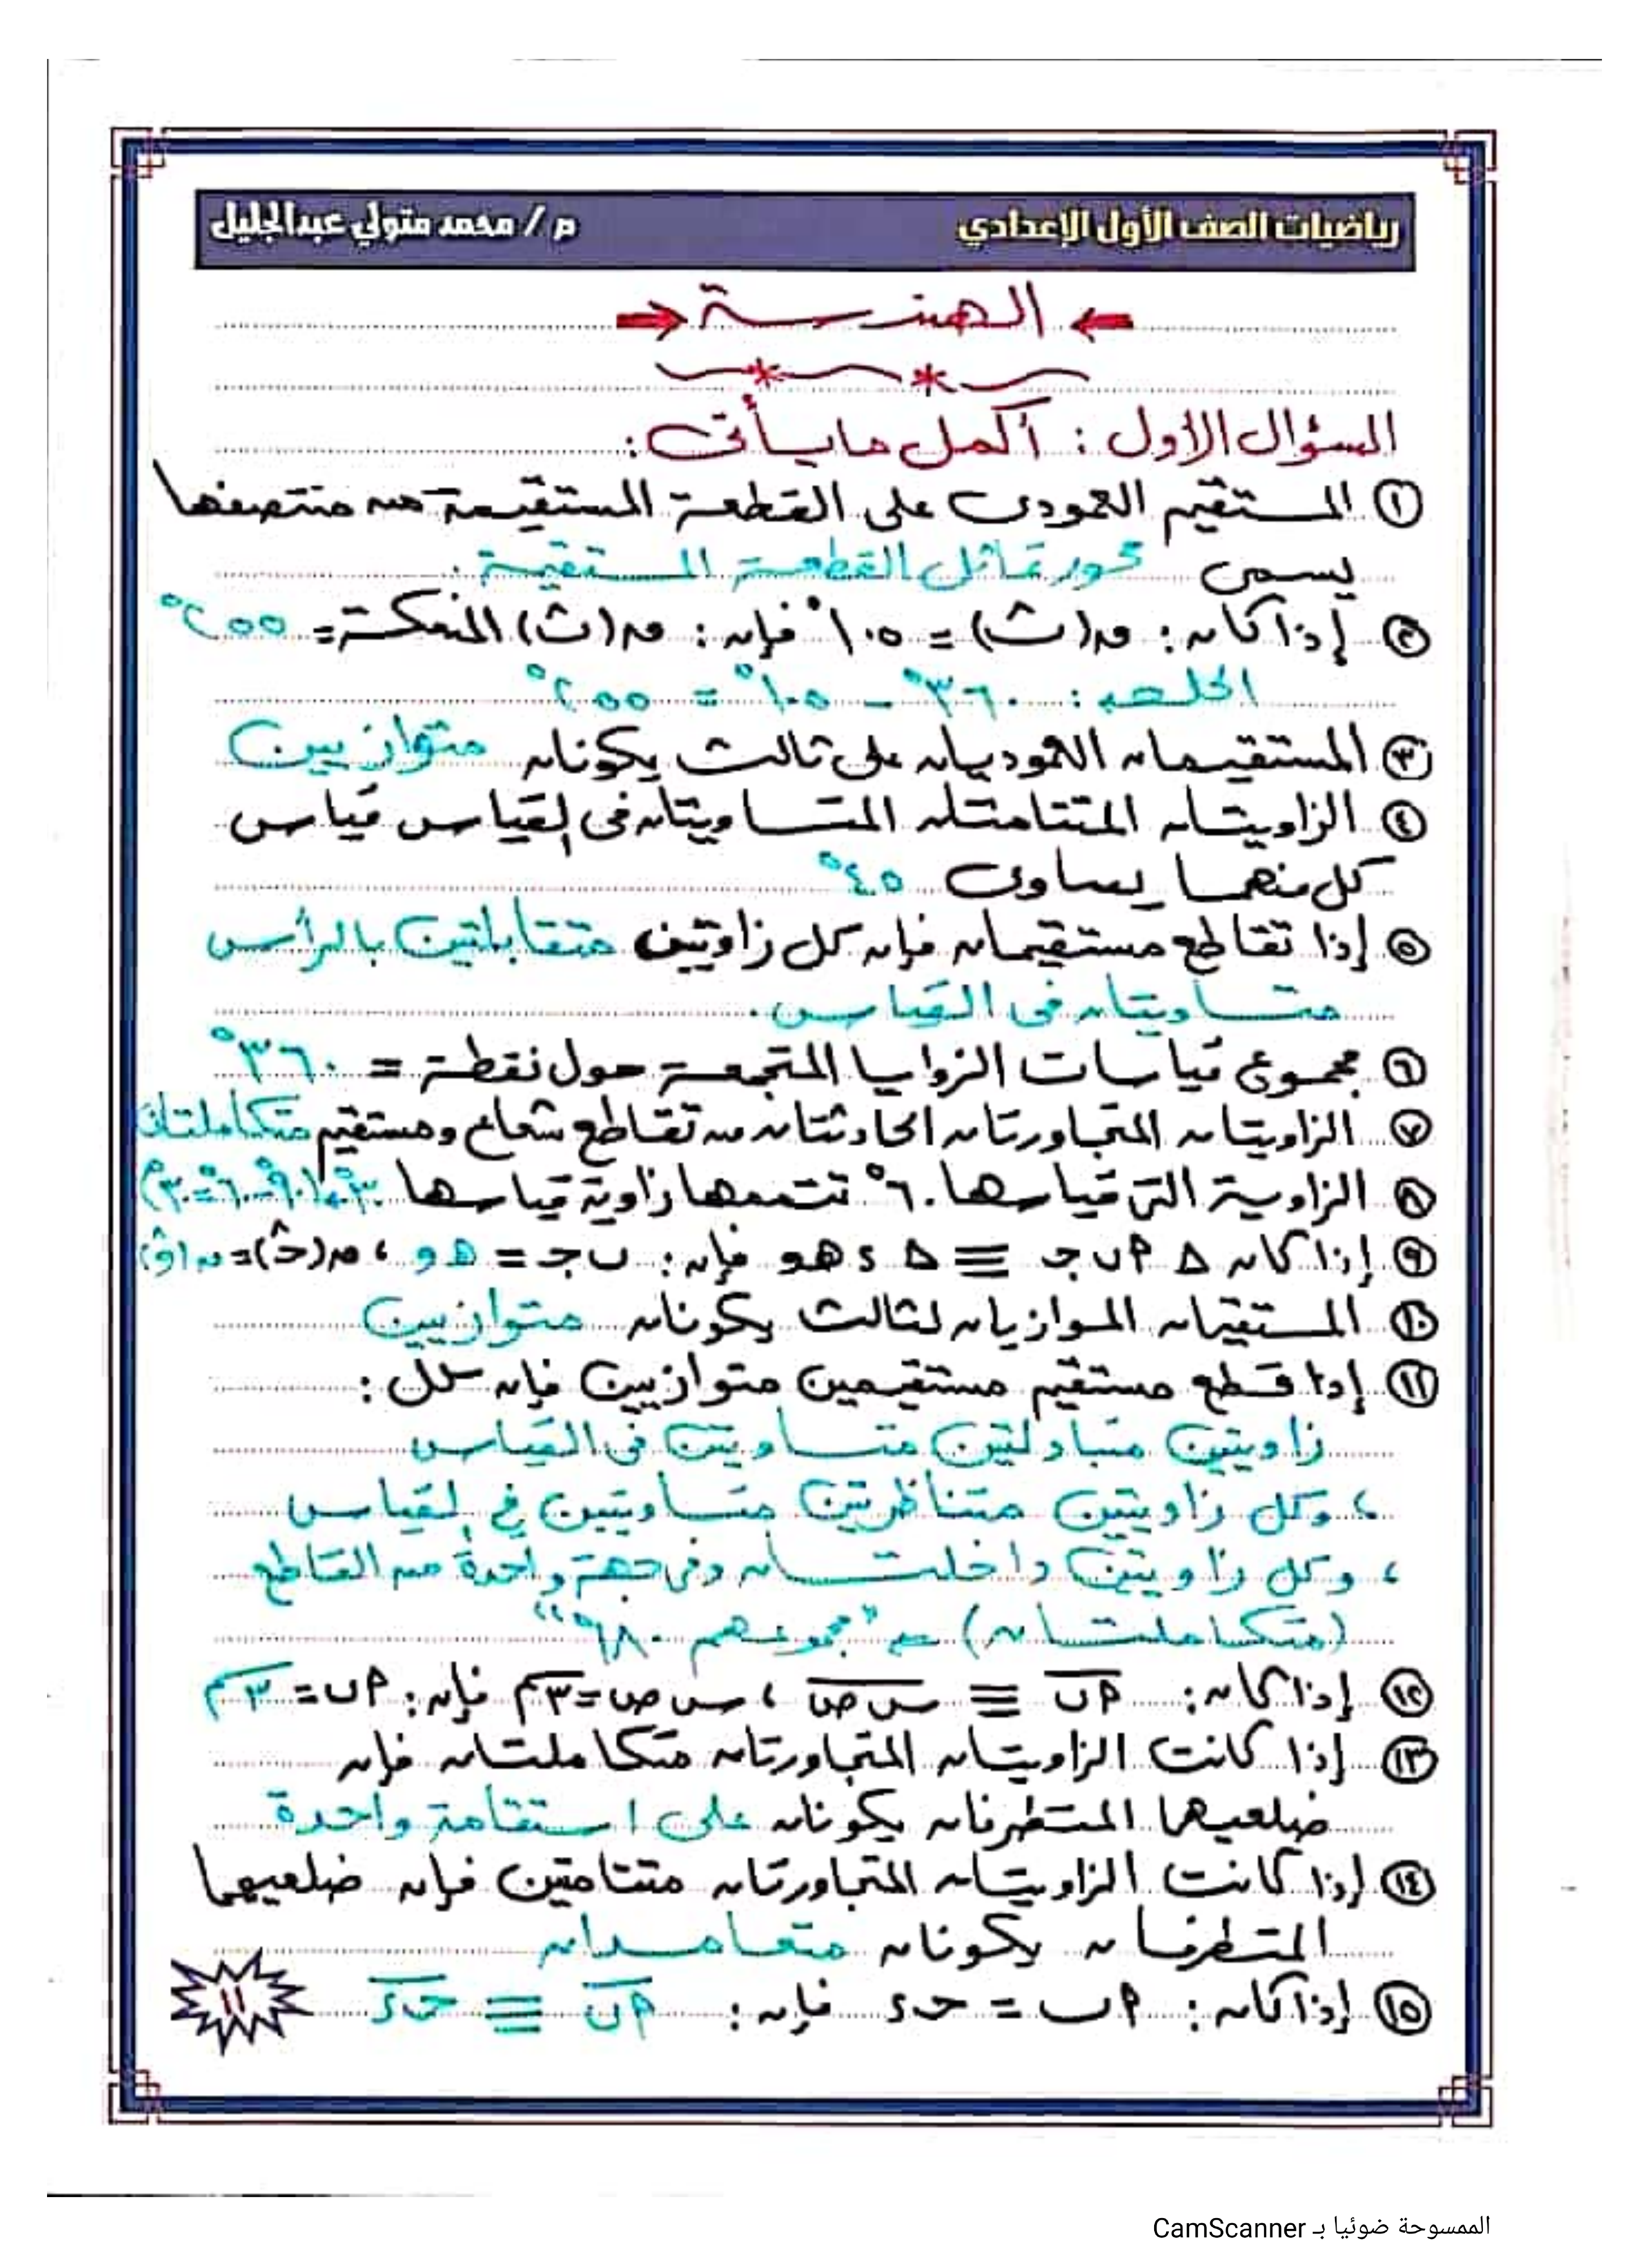 رياضيات الصف الأول الإعدادي
م / محمد متولي عبدالجليل
الهندسة
السؤال الأول : أكمل ما يأتى :
١ المستقيم العمودى على القطعة المستقيمة من منتصفها
يسمى محور تماثل القطعة المستقيمة .
٢ إذا كان : ق(ث) = ١٠٥° فإن : ق(ث) المنعكسة = ٢٥٥°
الحل : ٣٦٠° - ١٠٥° = ٢٥٥°
٣ المستقيمان العموديان على ثالث يكونان متوازيين
٤ الزاويتان المتتامتان المتساويتان فى القياس قياس
كل منهما يساوى ٤٥°
٥ إذا تقاطع مستقيمان فإن كل زاويتين متقابلتين بالرأس
متساويتان فى القياس .
٦ مجموع قياسات الزوايا المتجمعة حول نقطة = ٣٦٠°
٧ الزاويتان المتجاورتان الحادثتان من تقاطع شعاع ومستقيم متكاملتان
٨ الزاوية التى قياسها ٦٠° تتممها زاوية قياسها ٣٠° (٩٠° - ٦٠° = ٣٠°)
٩ إذا كان Δ م ب جـ ≡ Δ ء هـ و فإن : ب جـ = هـ و ، ق(جـ) = ق(و)
١٠ المستقيمان الموازيان لثالث يكونان متوازيين
١١ إذا قطع مستقيم مستقيمين متوازيين فإن كل :
زاويتين متبادلتين متساويتين فى القياس
، وكل زاويتين متناظرتين متساويتين في القياس
، وكل زاويتين داخلتان وفى جهة واحدة من القاطع
(متكاملتان) "مجموعهم ١٨٠°"
١٢ إذا كان : م ب ≡ س ص ، س ص = ٣سم فإن : م ب = ٣سم
١٣ إذا كانت الزاويتان المتجاورتان متكاملتان فإن
ضلعيهما المتطرفان يكونان على استقامة واحدة
١٤ إذا كانت الزاويتان المتجاورتان متتامتين فإن ضلعيهما
المتطرفان يكونان متعامدان
١٥ إذا كان : م ب = حـ ء فإن : م ب ≡ حـ ء
١١
الممسوحة ضوئيا بـ CamScanner